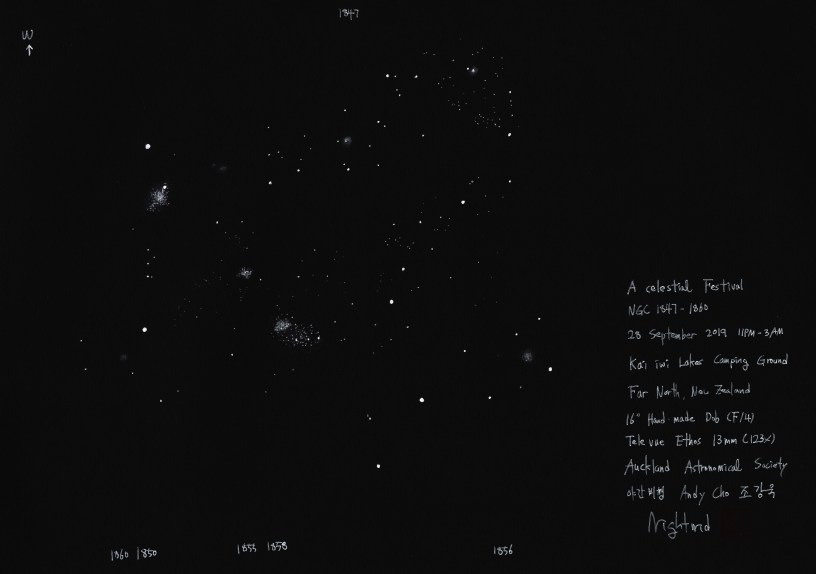 1847
W
A celestial Festival
NGC 1847 - 1860
28 September 2019 11PM - 3AM
Kai iwi Lakes Camping Ground
Far North, New Zealand
16" Hand made Dob (F/4)
Tele vue Ethos 13mm (123x)
Auckland Astronomical Society
야간비행 Andy Cho 조강욱
Nightwid
1860 1850
1855 1858
1856